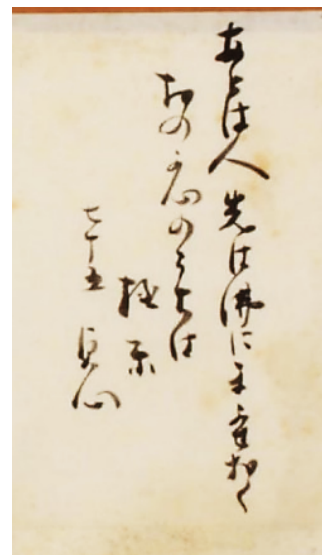 あとは人先は佛にまかせおく
おのか心のうちは
極楽
七十五 貞心